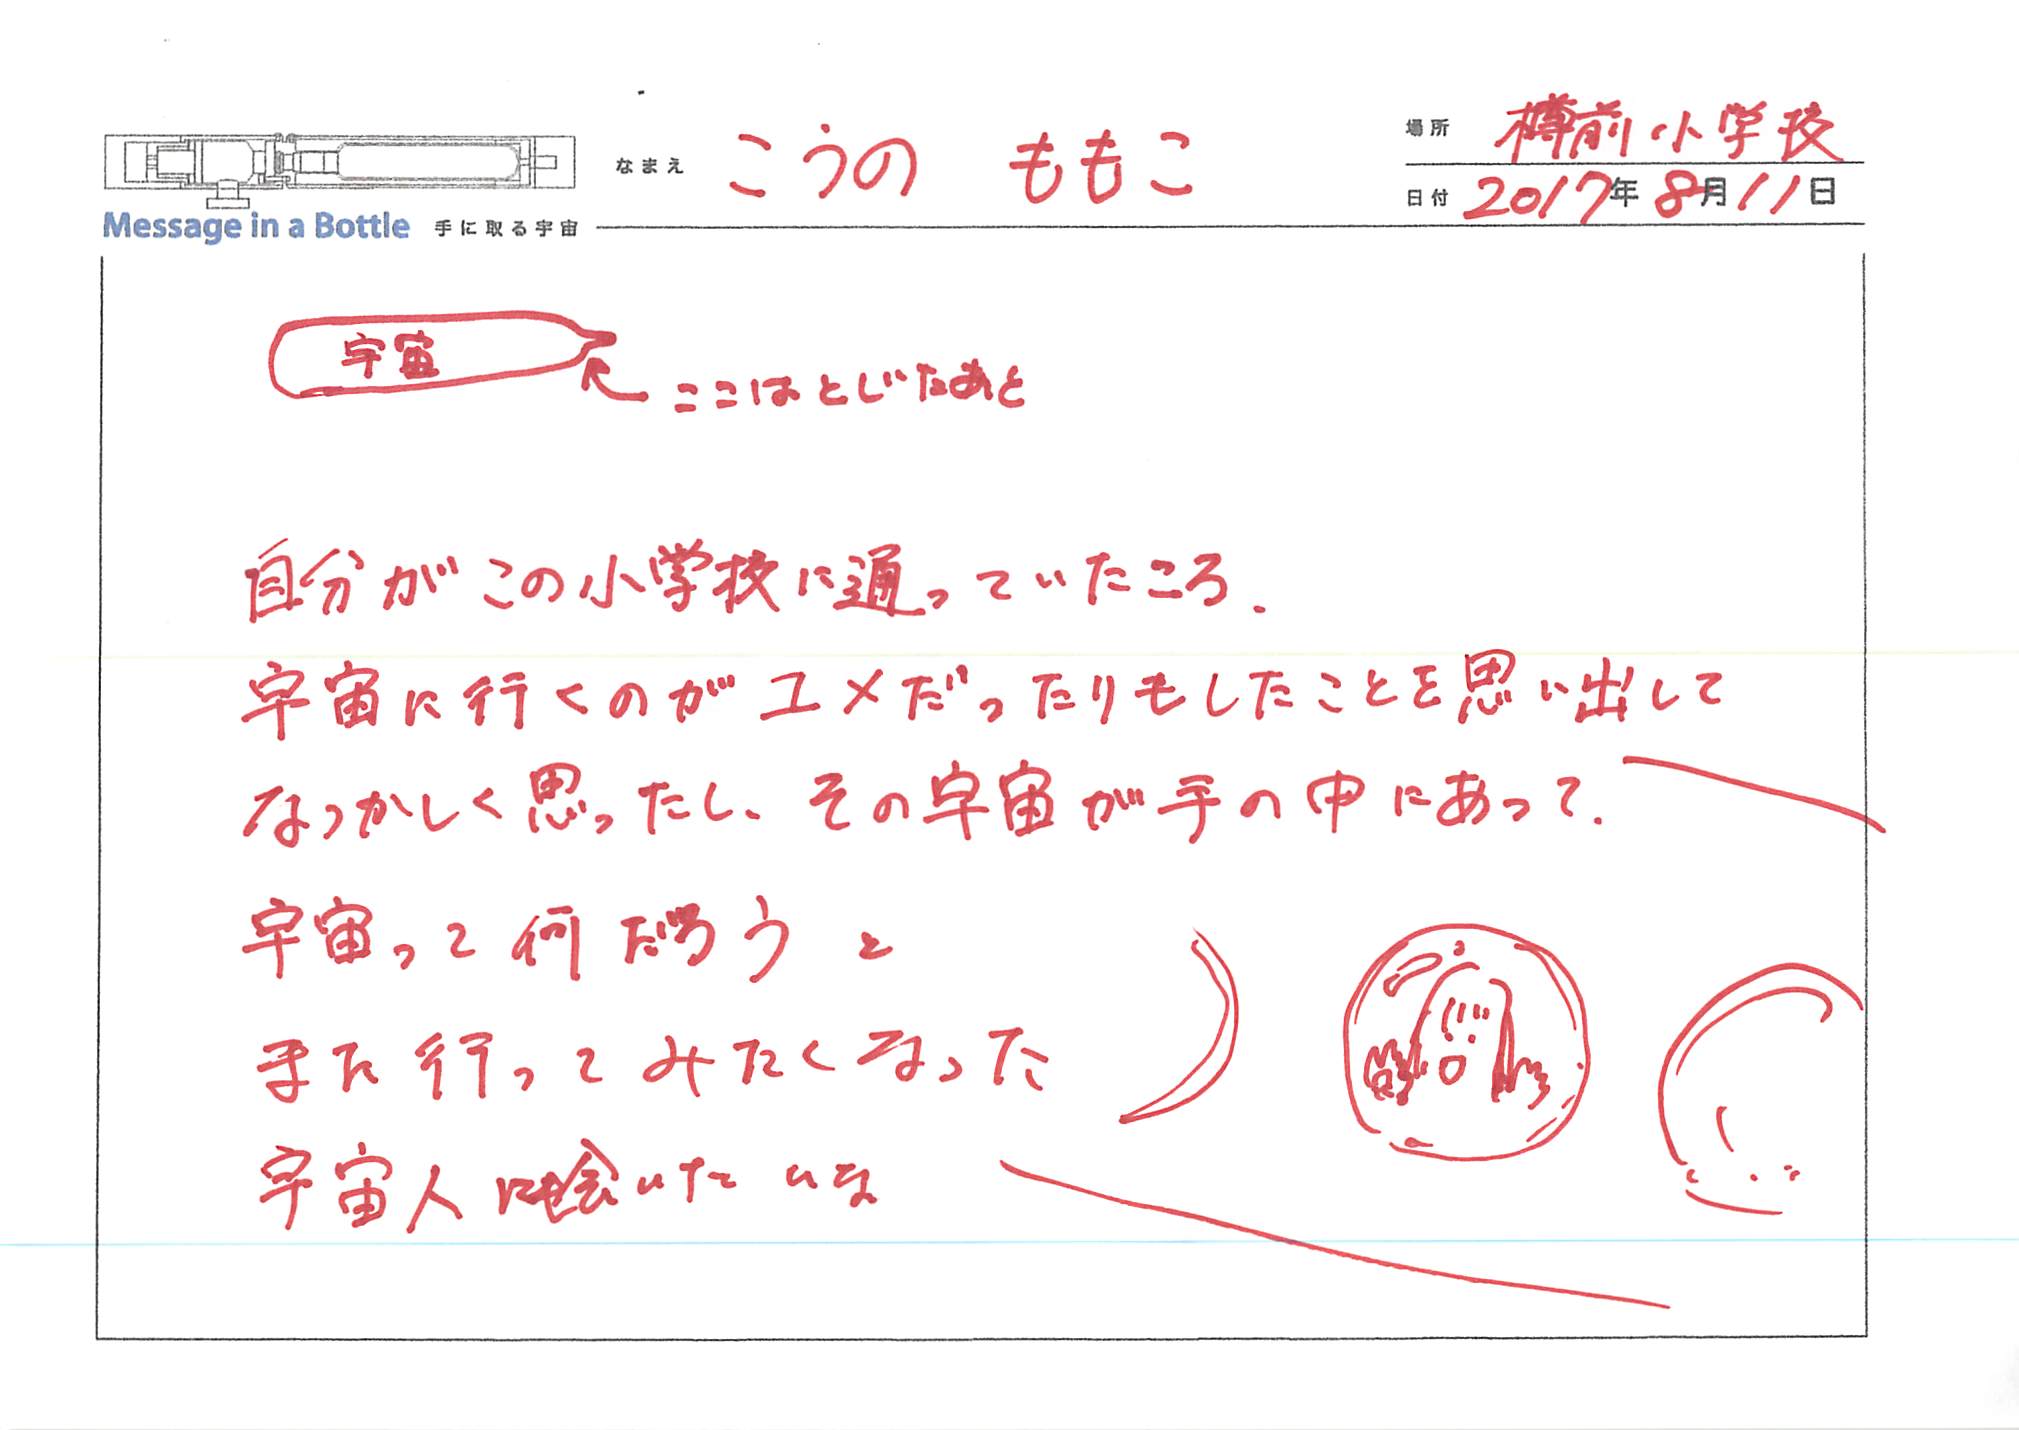 なまえ こうの ももこ
場所 樽前小学校
日付 2017年 8月11日
Message in a Bottle 手に取る宇宙
宇宙
ここはとじたあと
自分がこの小学校に通っていたころ.
宇宙に行くのがユメだったりもしたことを思い出して
なつかしく思ったし、その宇宙が手の中にあって.
宇宙って何だろうと
また行ってみたくなった
宇宙人にも会いたいな